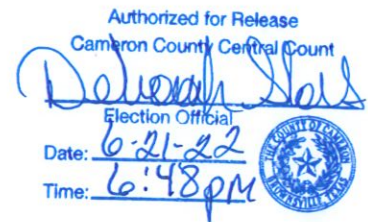 Authorized for Release
Cameron County Central Count
Deborah
Election Official
Date: 6-21-22
Time: 6:48 pm
THE COUNTY OF CAMERON
BROWNSVILLE, TEXAS